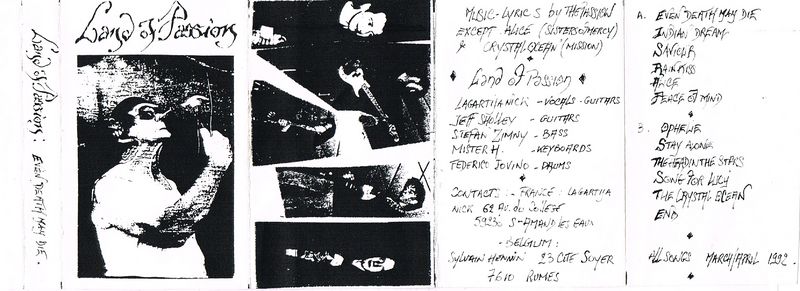 Land of Passion: EVEN DEATH MAY DIE.
Land of Passion
MUSIC-LYRICS by THE PASSION
EXCEPT ALICE (SISTERS OF MERCY)
& CRYSTAL OCEAN (MISSION)
Land Of Passion
LAGARTIJA NICK - VOCALS - GUITARS
JEFF - GUITARS
STEFAN ZIMNY - BASS
MISTER H. - KEYBOARDS
FEDERICO JOVINO - DRUMS
CONTACTS: - FRANCE: LAGARTIJA
NICK 62 AV. du COLLEGE
59230 S-AMAND LES EAUX
- BELGIUM:
SYLVAIN HENNIN 23 CITE
7610 RUMES
A. EVEN DEATH MAY DIE
INDIAN DREAM
SAVIOUR
RAIN KISS
ALICE
PEACE OF MIND
B. OPHELIE
STAY ALONE
THE HEAD IN THE STARS
SONG FOR LUCY
THE CRYSTAL OCEAN
END
ALL SONGS MARCH/APRIL 1992.